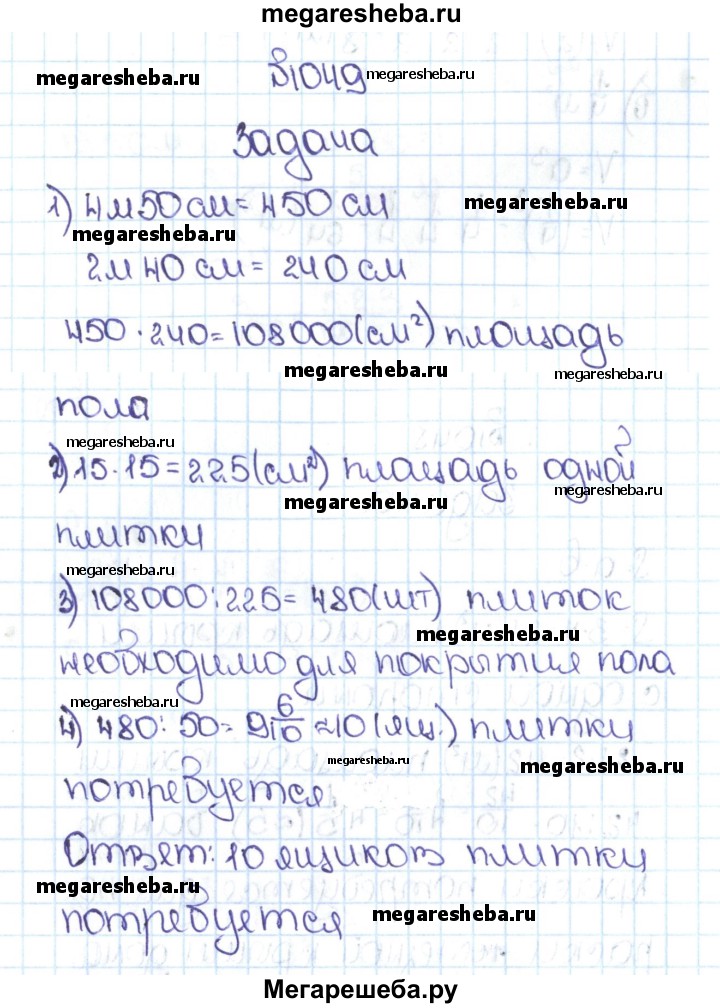 megaresheba.ru
megaresheba.ru
№1049 megaresheba.ru
Задача
1) 4м50см=450см
megaresheba.ru
megaresheba.ru
2м40см=240см
450·240=108000(см²) площадь
megaresheba.ru
megaresheba.ru
пола
megaresheba.ru
2) 15·15=225(см²) площадь одной
megaresheba.ru
megaresheba.ru
плитки
megaresheba.ru
3) 108000:225=480(шт) плиток
megaresheba.ru
необходимо для покрытия пола
megaresheba.ru
4) 480:50=9 6/10≈10(ящ.) плитки
megaresheba.ru
megaresheba.ru
потребуется
Ответ: 10 ящиков плитки
megaresheba.ru
потребуется
megaresheba.ru
Мегарешеба.ру